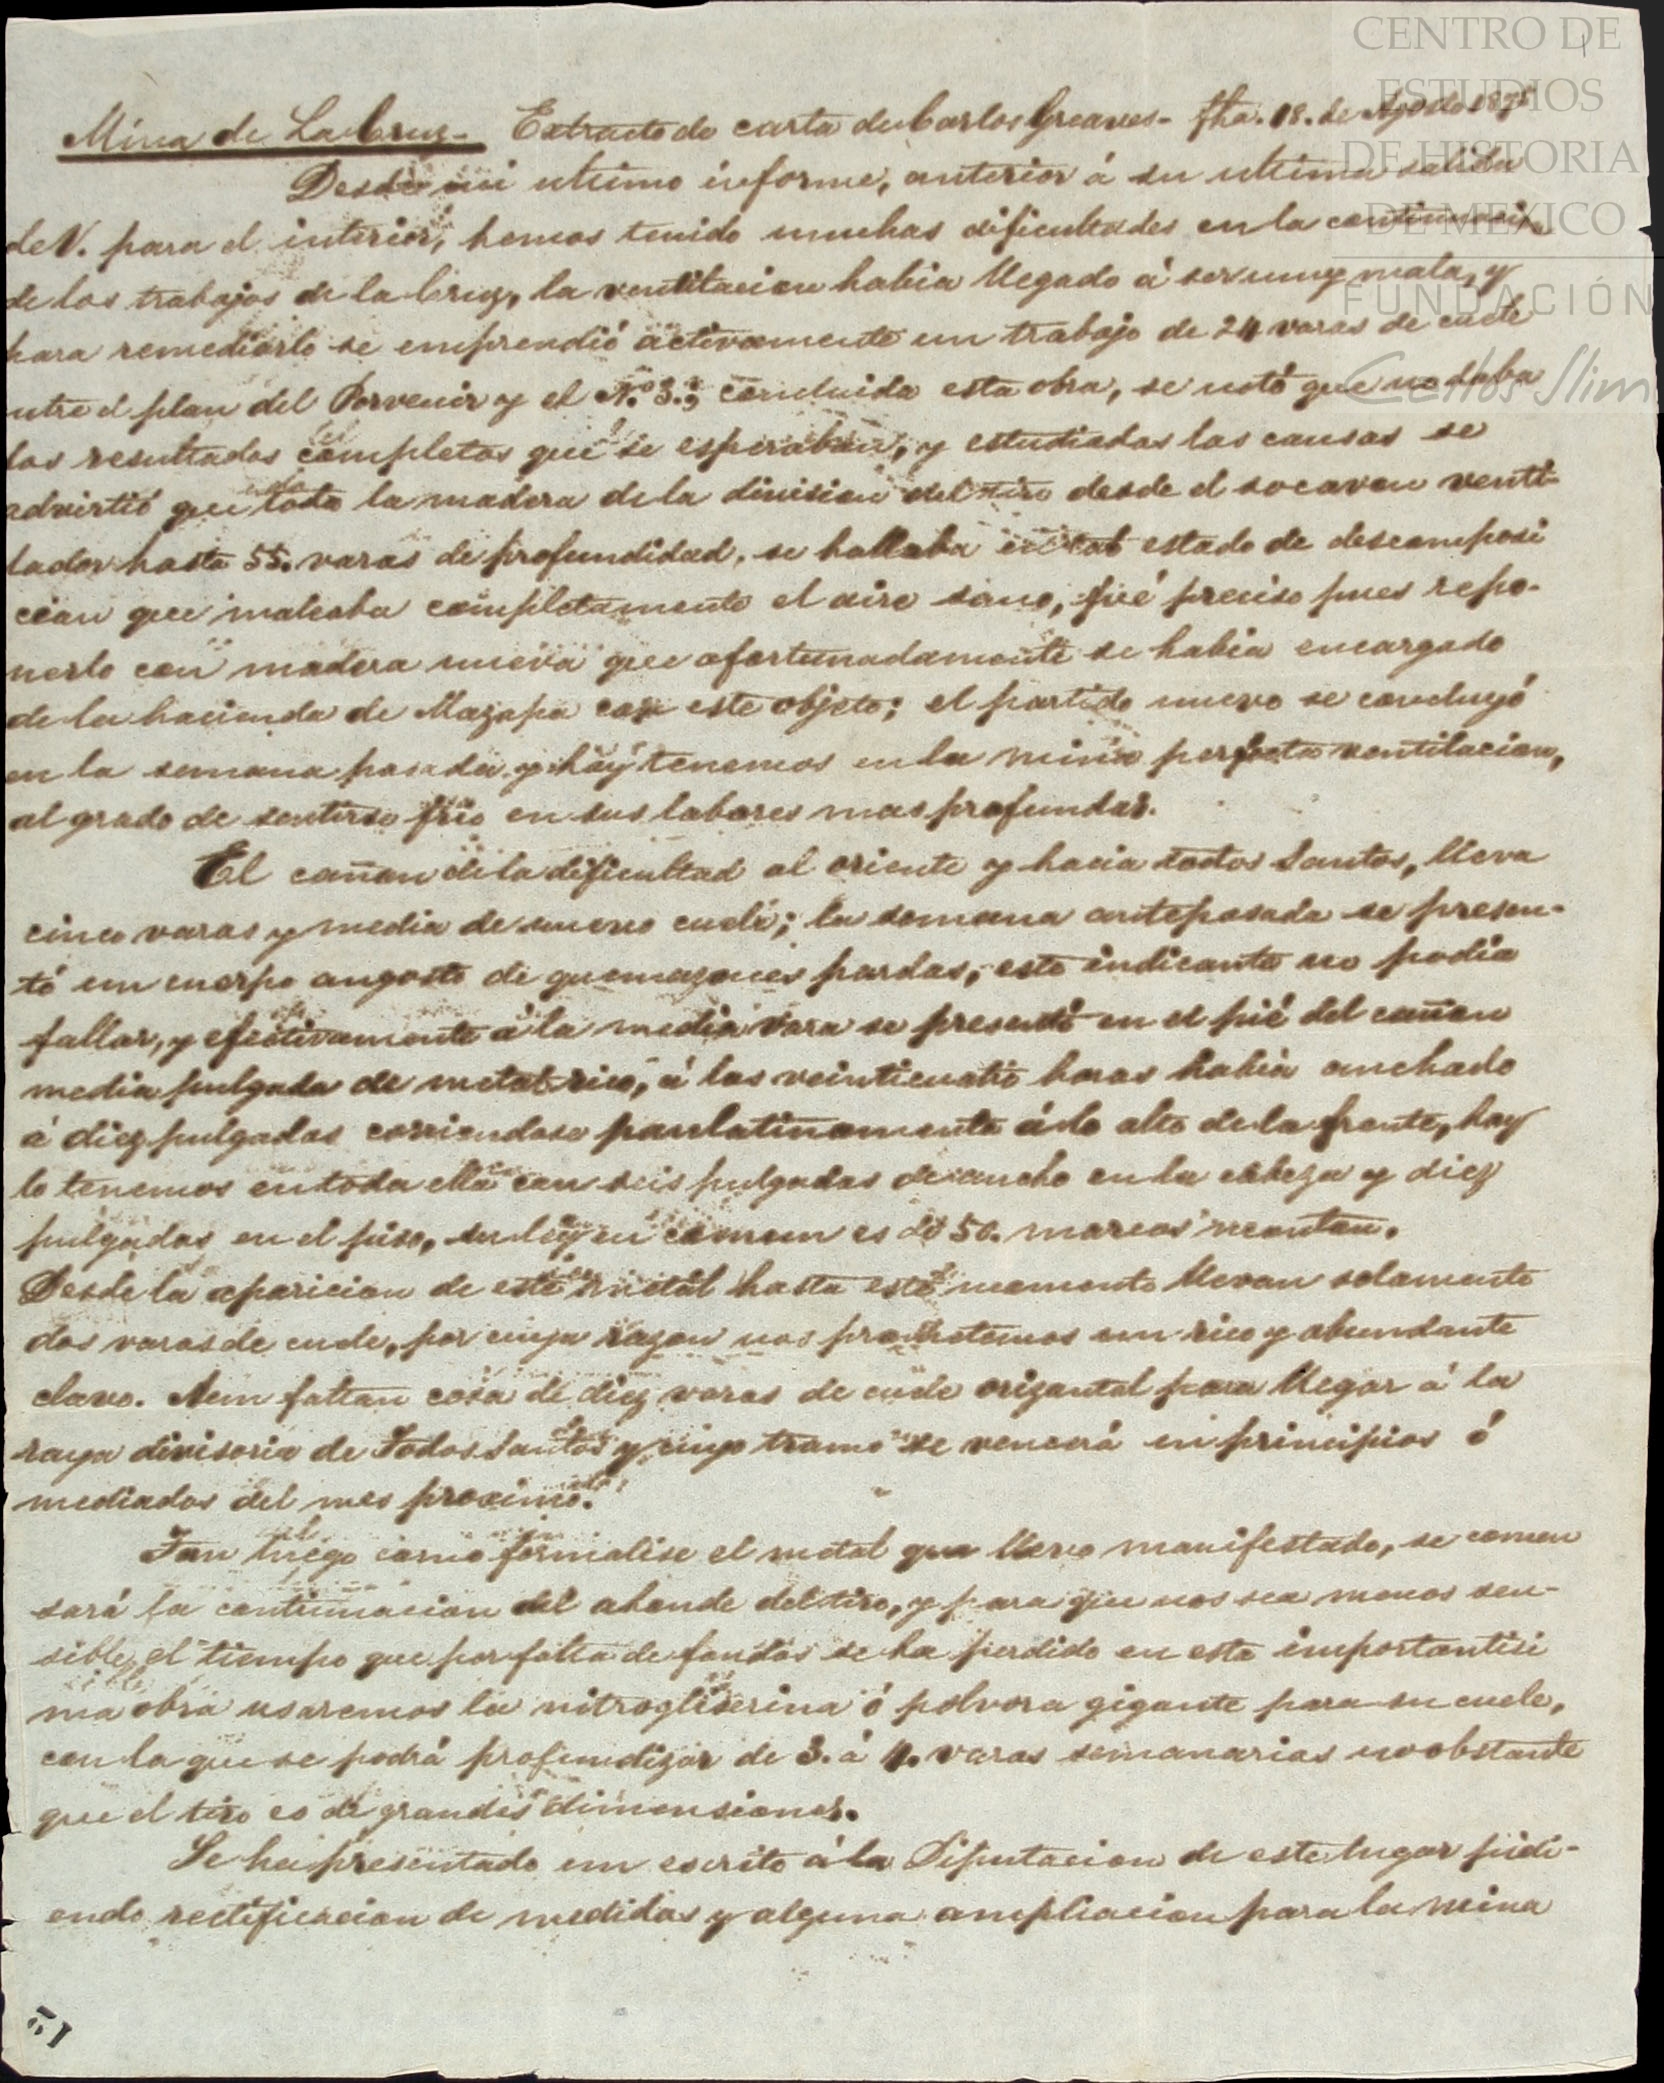 CENTRO DE
ESTUDIOS
DE HISTORIA
DE MEXICO
FUNDACIÓN
Carlos Slim
Mina de La Cruz- Extracto de carta de Carlos Greaves- fha. 18. de Agosto
Desde mi ultimo informe, anterior á su ultima salida
de V. para el interior, hemos tenido muchas dificultades en la continuacion
de los trabajos de la Cruz, la ventilacion habia llegado á ser muy mala, y
para remediarlo se emprendió activamente un trabajo de 24 varas de cuele
entre el plan del Porvenir y el No. 3.; concluida esta obra, se notó que no daba
los resultados completos que se esperaban, y estudiadas las causas se
advirtió que toda la madera de la division del tiro desde el socavon venti-
lador hasta 55. varas de profundidad, se hallaba en tal estado de descomposi
cion que maleaba completamente el aire sano, fué preciso pues repo-
nerlo con madera nueva que afortunadamente se habia encargado
de la hacienda de Mazapa con este objeto; el partido nuevo se concluyó
en la semana pasada y hoy tenemos en la mina perfecta ventilacion,
al grado de sentirse frio en sus labores mas profundas.
El cañon de la dificultad al oriente y hacia todos Santos, lleva
cinco varas y media de nuevo cuele; la semana antepasada se presen-
tó un cuerpo angosto de quemazones pardas, este indicante no podia
fallar, y efectivamente á la media vara se presentó en el pié del cañon
media pulgada de metal rico, á las veinticuatro horas habia anchado
á diez pulgadas corriendose paulatinamente á lo alto de la frente, hoy
lo tenemos en toda ella con seis pulgadas de ancho en la cabeza y diez
pulgadas en el piso, su ley en comun es de 50. marcos monton.
Desde la aparicion de este metal hasta este momento llevan solamente
dos varas de cuele, por cuya razon nos prometemos un rico y abundante
clavo. Aun faltan cosa de diez varas de cuele orizontal para llegar á la
raya divisoria de Todos Santos y cuyo tramo se vencerá en principios ó
mediados del mes proximo.
Tan luego como formalise el metal que llevo manifestado, se comen
sará la continuacion del ahonde del tiro, y para que nos sea menos sen-
sible el tiempo que por falta de fondos se ha perdido en esta importantisi
ma obra usaremos la nitrogliserina ó polvora gigante para su cuele,
con la que se podrá profundizar de 3. á 4. varas semanarias no obstante
que el tiro es de grandes dimensiones.
Se ha presentado un escrito á la Diputacion de este lugar pidi-
endo rectificacion de medidas y alguna ampliacion para la mina